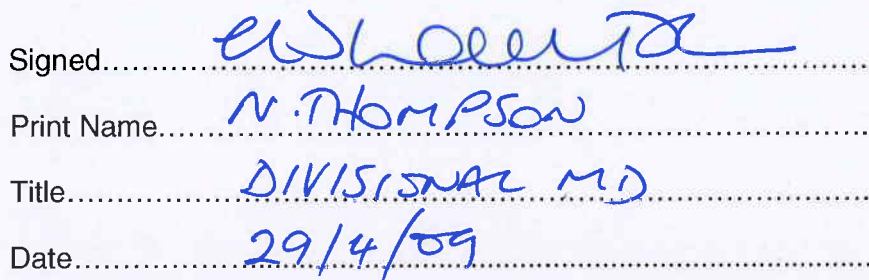 Signed..........
Print Name.....N. THOMPSON
Title..................DIVISIONAL MD
Date..................29/4/09